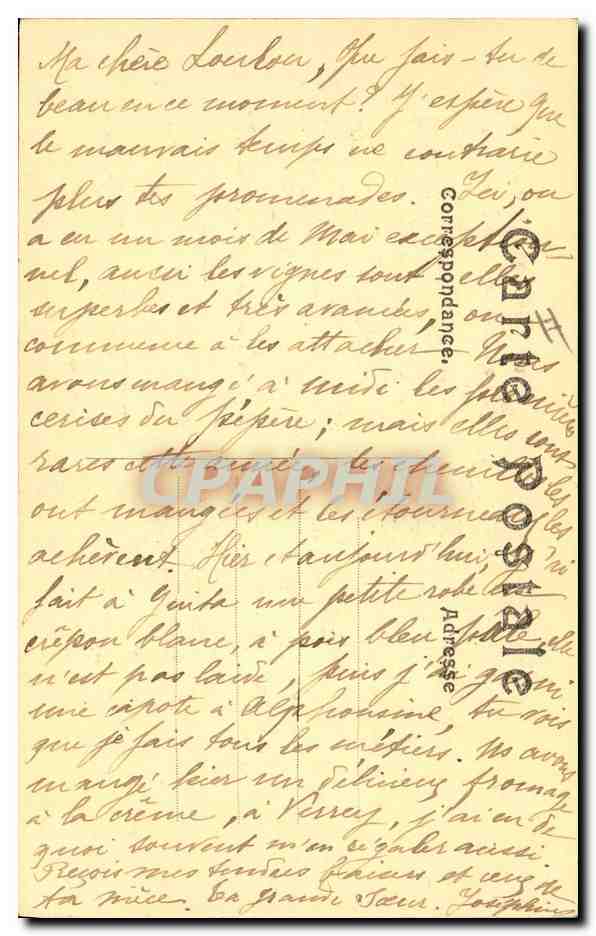 Ma chère Loulou, Que fais-tu de
beau en ce moment? J'espère que
le mauvais temps ne contrarie
plus tes promenades. Ici, on
a eu un mois de Mai exception
nel, aussi les vignes sont elles
superbes et très avancées, on
commence à les attacher. Nous
avons mangé à midi les premières
cerises du pépère; mais elles sont
rares cette année, les chenilles les
ont mangées et les étourneaux les
achèvent. Hier et aujourd'hui, j'ai
fait à Guita une petite robe
crêpon blanc, à pois bleu, elle
n'est pas laide, puis j'ai garni
une capote à Alphonsine, tu vois
que je fais tous les métiers. Ns avons
mangé hier un délicieux fromage
à la crême, à Verrey, j'ai eu de
quoi souvent m'en régaler aussi.
Reçois mes tendres baisers et ceux de
ta nièce. Ta grande Sœur. Joséphine
Carte Postale
Correspondance.
Adresse
CPAPHIL